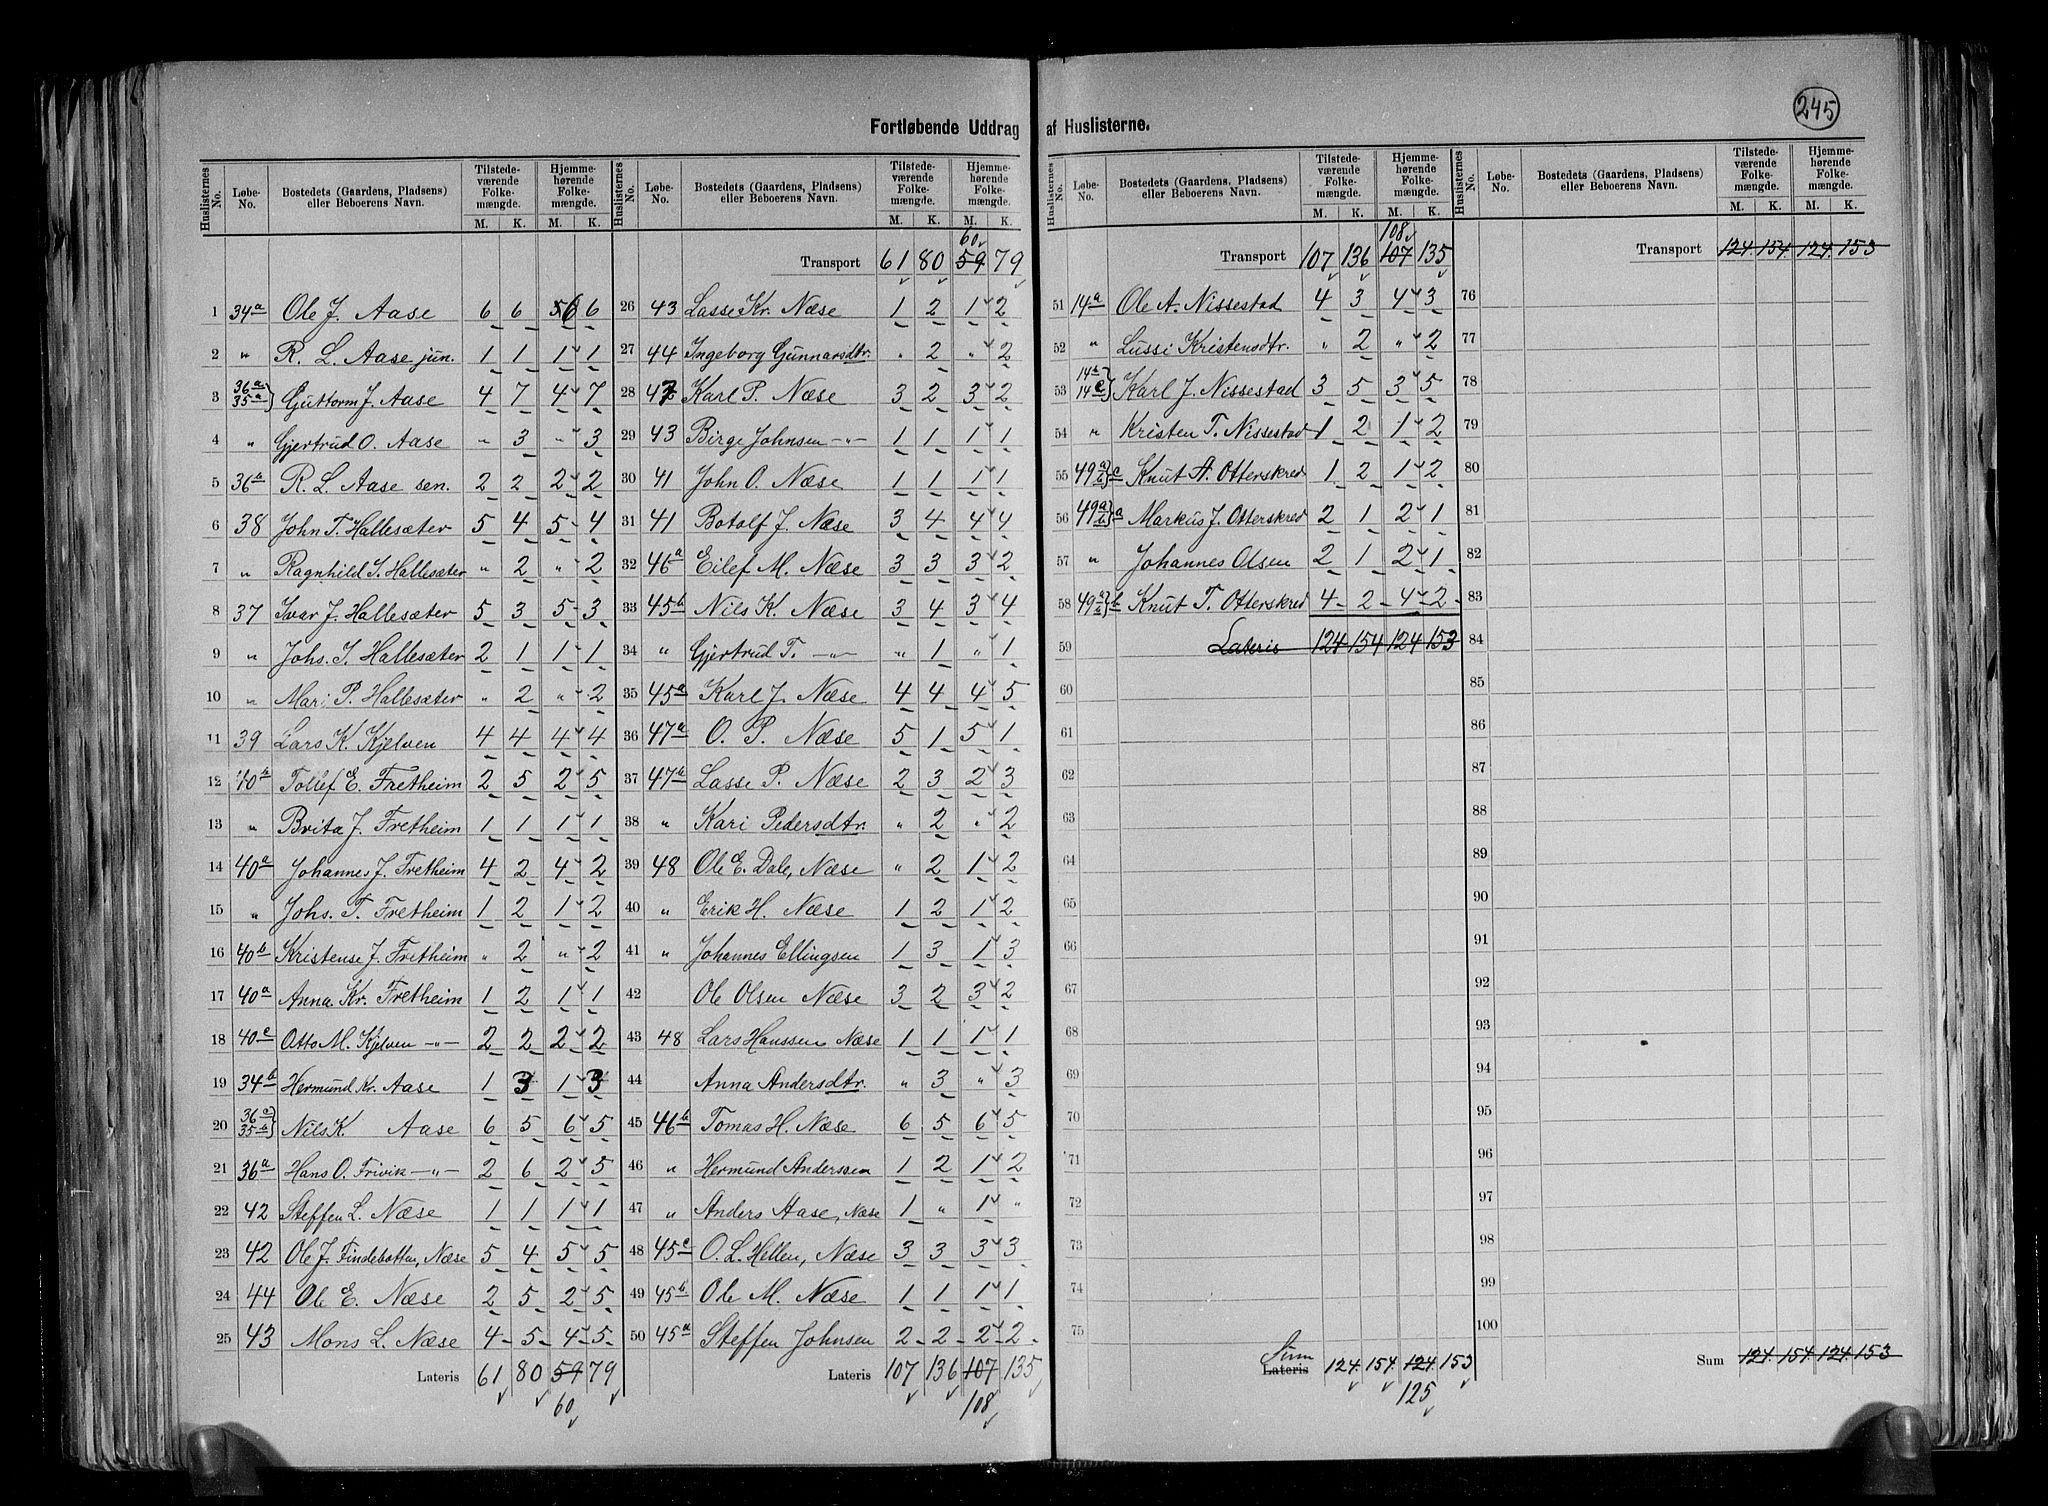 245
Fortløbende Uddrag af Huslisterne.
Huslisternes No. Løbe-No. Bostedets (Gaardens, Pladsens) eller Beboerens Navn. Tilstedeværende Folkemængde. M. K. Hjemmehørende Folkemængde. M. K.
1 34a Ole J. Aase 6 6 6 6
2 " R. L. Aase jun. 1 1 1 1
3 36a 35a} Guttorm J. Aase 4 7 4 7
4 " Gjertrud O. Aase " 3 " 3
5 36b R. L. Aase sen. 2 2 2 2
6 38 John T. Hallesæter 5 4 5 4
7 " Ragnhild S. Hallesæter " 2 " 2
8 37 Ivar J. Hallesæter 5 3 5 3
9 " Johs. S. Hallesæter 2 1 1 1
10 " Mari P. Hallesæter " 2 " 2
11 39 Lars K. Kjelven 4 4 4 4
12 40b Tollef E. Fretheim 2 5 2 5
13 " Brita J. Fretheim 1 1 1 1
14 40a Johannes J. Fretheim 4 2 4 2
15 " Johs. T. Fretheim 1 2 1 2
16 40b Kristense J. Fretheim " 2 " 2
17 40a Anna Kr. Fretheim 1 2 1 1
18 40c Otto M. Kjelven -"- 2 2 2 2
19 34b Hermund Kr. Aase 1 3 1 3
20 36c 35b} Nils K. Aase 6 5 6 5
21 36a Hans O. Frivik -"- 2 6 2 5
22 42 Steffen L. Næse 1 1 1 1
23 42 Ole J. Findebotten, Næse 5 4 5 5
24 44 Ole E. Næse 2 5 2 5
25 43 Mons L. Næse 4 5 4 5
Lateris 61 80 59 79
60
Huslisternes No. Løbe-No. Bostedets (Gaardens, Pladsens) eller Beboerens Navn. Tilstedeværende Folkemængde. M. K. Hjemmehørende Folkemængde. M. K.
60
Transport 61 80 59 79
26 43 Lasse Kr. Næse 1 2 1 2
27 44 Ingeborg Gunnarsdtr. " 2 " 2
28 47 Karl P. Næse 3 2 3 2
29 43 Birge Johnsen -"- 1 1 1 1
30 41 John O. Næse 1 1 1 1
31 41 Botolf J. Næse 3 4 4 4
32 46a Eilef M. Næse 3 3 3 2
33 45b Nils K. Næse 3 4 3 4
34 " Gjertrud T. -"- " 1 " 1
35 45a Karl J. Næse 4 4 4 5
36 47a O. P. Næse 5 1 5 1
37 47b Lasse P. Næse 2 3 2 3
38 " Kari Pedersdtr. " 2 " 2
39 48 Ole E. Dale, Næse " 2 1 2
40 " Erik H. Næse 1 2 1 2
41 " Johannes Ellingsen 1 3 1 3
42 Ole Olsen Næse 3 2 3 2
43 48 Lars Hanssen Næse 1 1 1 1
44 Anna Andersdtr. " 3 " 3
45 46b Tomas H. Næse 6 5 6 5
46 " Hermund Anderssen 1 2 1 2
47 " Anders Aase, Næse 1 " 1 "
48 45c O. L. Hellen, Næse 3 3 3 3
49 45b Ole M. Næse 1 1 1 1
50 45a Steffen Johnsen 2 2 2 2
Lateris 107 136 107 135
108
Huslisternes No. Løbe-No. Bostedets (Gaardens, Pladsens) eller Beboerens Navn. Tilstedeværende Folkemængde. M. K. Hjemmehørende Folkemængde. M. K.
108
Transport 107 136 107 135
51 14a Ole A. Nissestad 4 3 4 3
52 " Lussi Kristensdtr. " 2 " 2
53 14b 14c} Karl J. Nissestad 3 5 3 5
54 " Kristen T. Nissestad 1 2 1 2
55 49a b}c Knut A. Otterskred 1 2 1 2
56 49a b}a Markus J. Otterskred 2 1 2 1
57 " Johannes Olsen 2 1 2 1
58 49a b}b Knut T. Otterskred 4 2 4 2
59 Lateris 124 154 124 153
60
61
62
63
64
65
66
67
68
69
70
71
72
73
74
75
Sum Lateris 124. 154. 124. 153
125
Huslisternes No. Løbe-No. Bostedets (Gaardens, Pladsens) eller Beboerens Navn. Tilstedeværende Folkemængde. M. K. Hjemmehørende Folkemængde. M. K.
Transport 124. 154. 124. 153
76
77
78
79
80
81
82
83
84
85
86
87
88
89
90
91
92
93
94
95
96
97
98
99
100
Sum 124. 154. 124. 153